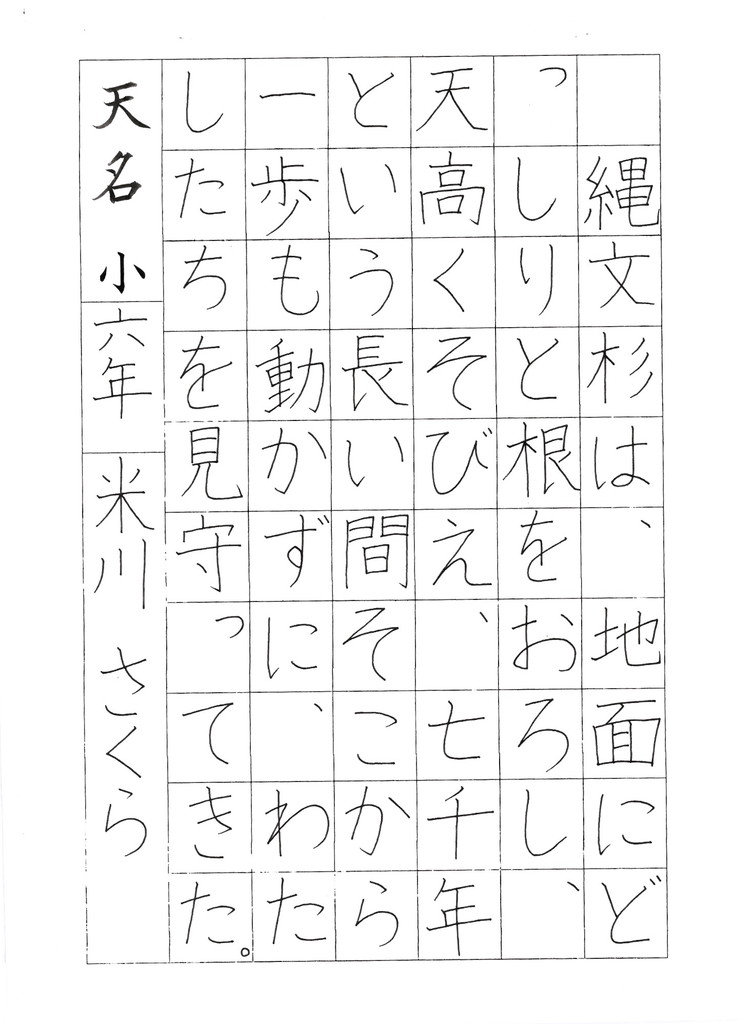 縄文杉は、地面にど
っしりと根をおろし、
天高くそびえ、七千年
という長い間そこから
一歩も動かずに、わた
したちを見守ってきた。
天名小 六年 米川 さくら